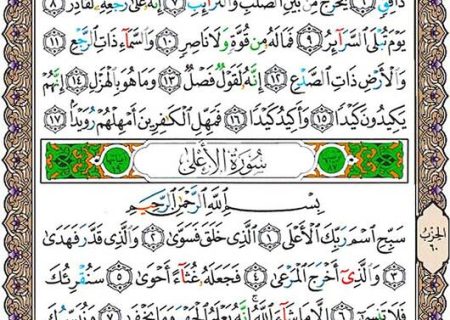 دَافِقٍ ۝ يَخْرُجُ مِنۢ بَيْنِ ٱلصُّلْبِ وَٱلتَّرَآئِبِ ۝٧ إِنَّهُۥ عَلَىٰ رَجْعِهِۦ لَقَادِرٌ ۝٨
يَوْمَ تُبْلَى ٱلسَّرَآئِرُ ۝٩ فَمَا لَهُۥ مِن قُوَّةٍ وَلَا نَاصِرٍ ۝١٠ وَٱلسَّمَآءِ ذَاتِ ٱلرَّجْعِ ۝١١
وَٱلْأَرْضِ ذَاتِ ٱلصَّدْعِ ۝١٢ إِنَّهُۥ لَقَوْلٌ فَصْلٌ ۝١٣ وَمَا هُوَ بِٱلْهَزْلِ ۝١٤ إِنَّهُمْ
يَكِيدُونَ كَيْدًا ۝١٥ وَأَكِيدُ كَيْدًا ۝١٦ فَمَهِّلِ ٱلْكَٰفِرِينَ أَمْهِلْهُمْ رُوَيْدًۢا ۝١٧
سُورَةُ ٱلْأَعْلَىٰ
بِسْمِ ٱللَّهِ ٱلرَّحْمَٰنِ ٱلرَّحِيمِ
سَبِّحِ ٱسْمَ رَبِّكَ ٱلْأَعْلَى ۝١ ٱلَّذِى خَلَقَ فَسَوَّىٰ ۝٢ وَٱلَّذِى قَدَّرَ فَهَدَىٰ
۝٣ وَٱلَّذِىٓ أَخْرَجَ ٱلْمَرْعَىٰ ۝٤ فَجَعَلَهُۥ غُثَآءً أَحْوَىٰ ۝٥ سَنُقْرِئُكَ
فَلَا تَنسَىٰٓ ۝٦ إِلَّا مَا شَآءَ ٱللَّهُ ۚ إِنَّهُۥ يَعْلَمُ ٱلْجَهْرَ وَمَا يَخْفَىٰ ۝٧ وَنُيَسِّرُكَ
الحزب
٦٠